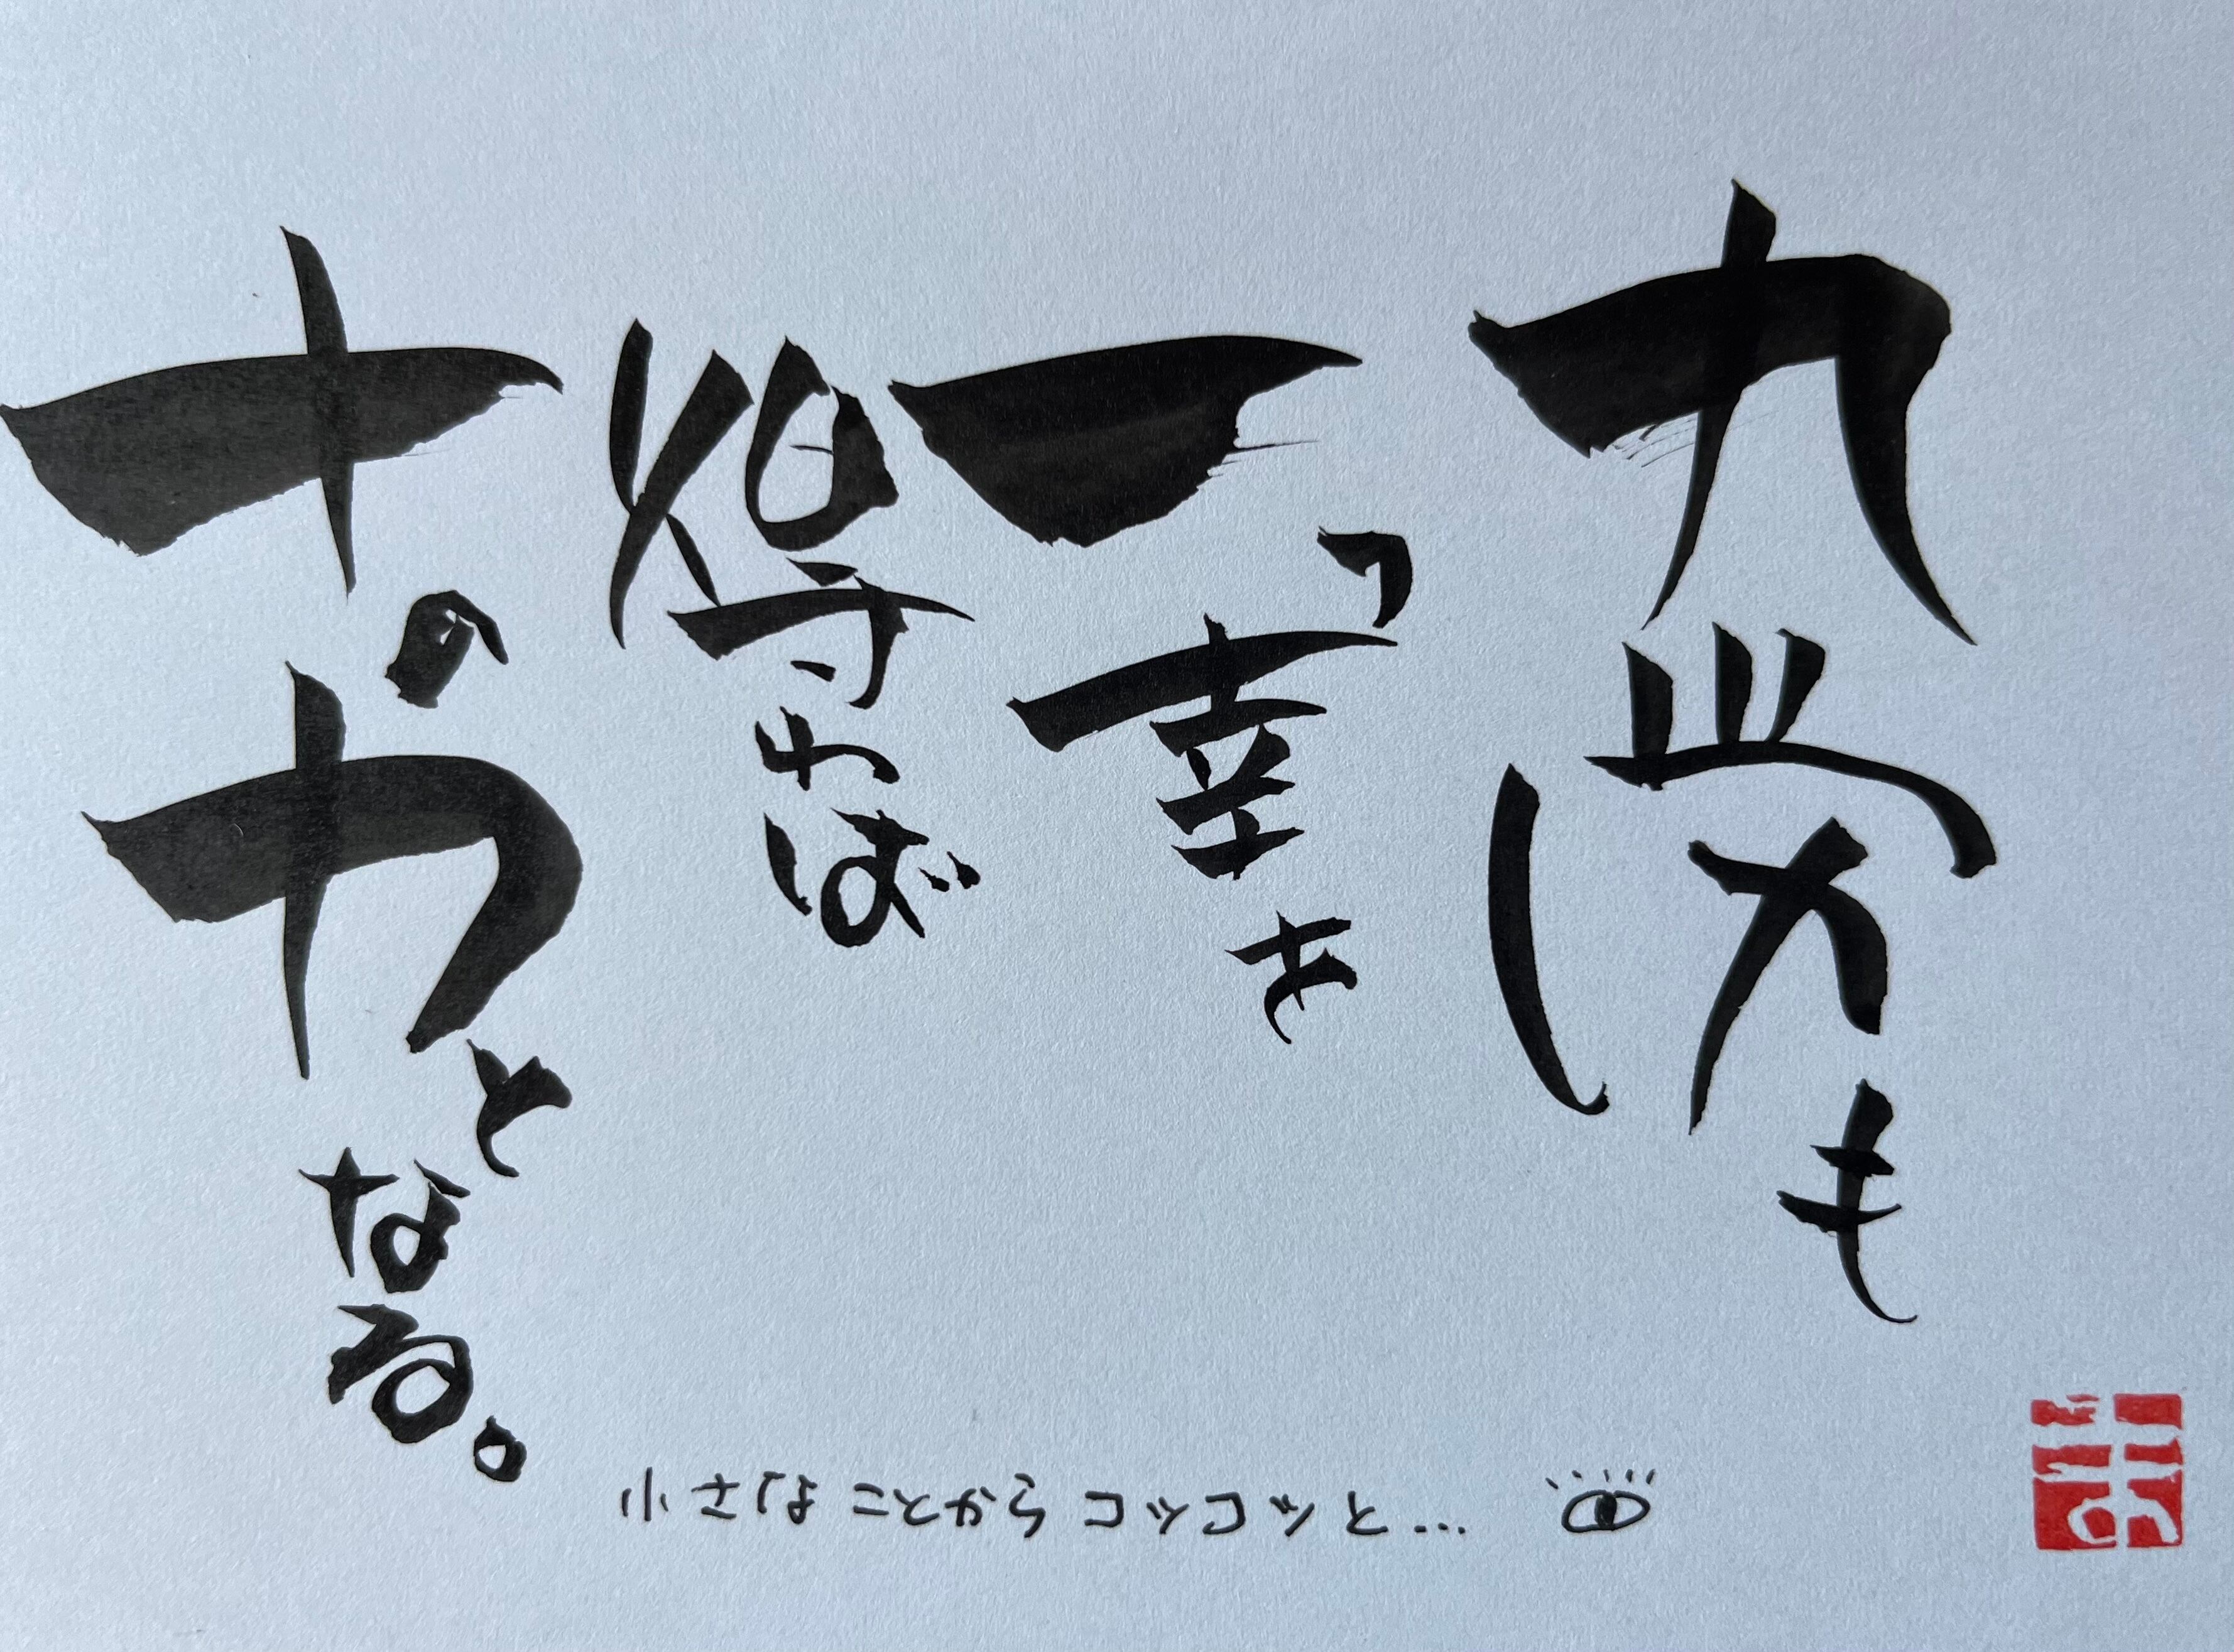 九労も
一つ幸を
得れば
十の力となる。
小さなことからコツコツと…